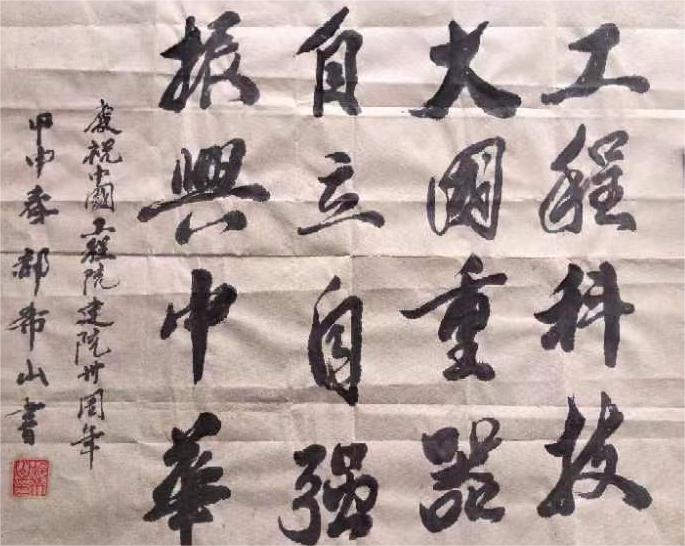 工程科技
大国重器
自立自强
振興中華
慶祝中國工程院建院卅周年
甲申春 郝希山書